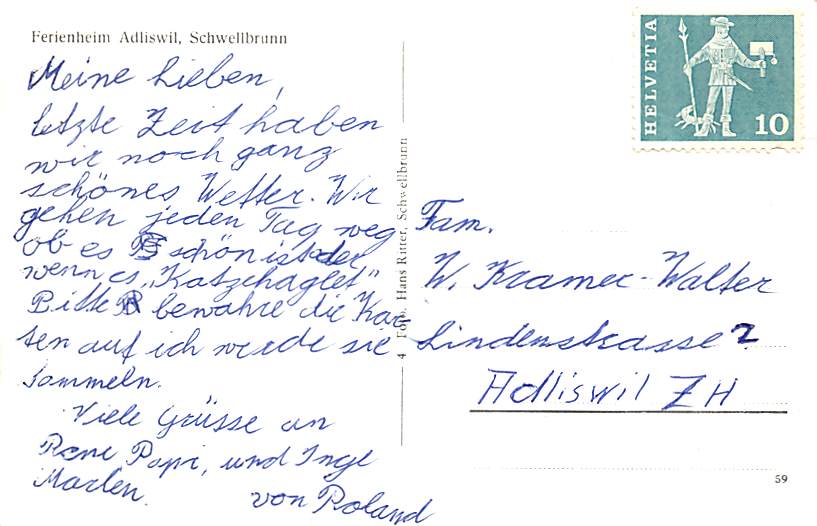 Ferienheim Adliswil, Schwellbrunn
Meine Lieben,
letzte Zeit haben
wir noch ganz
schönes Wetter. Wir
gehen jeden Tag weg
ob es schön ist oder
wenn es „Katzehaglet"
Bitte bewahre die Kar-
ten auf ich werde sie
sammeln.
Viele Grüsse an
Rene Papi, und Inge
Marlen.
von Roland
4 Foto. Hans Ritter, Schwellbrunn
HELVETIA
10
Fam.
W. Kramer-Walter
Lindenstrasse 2
Adliswil ZH
59